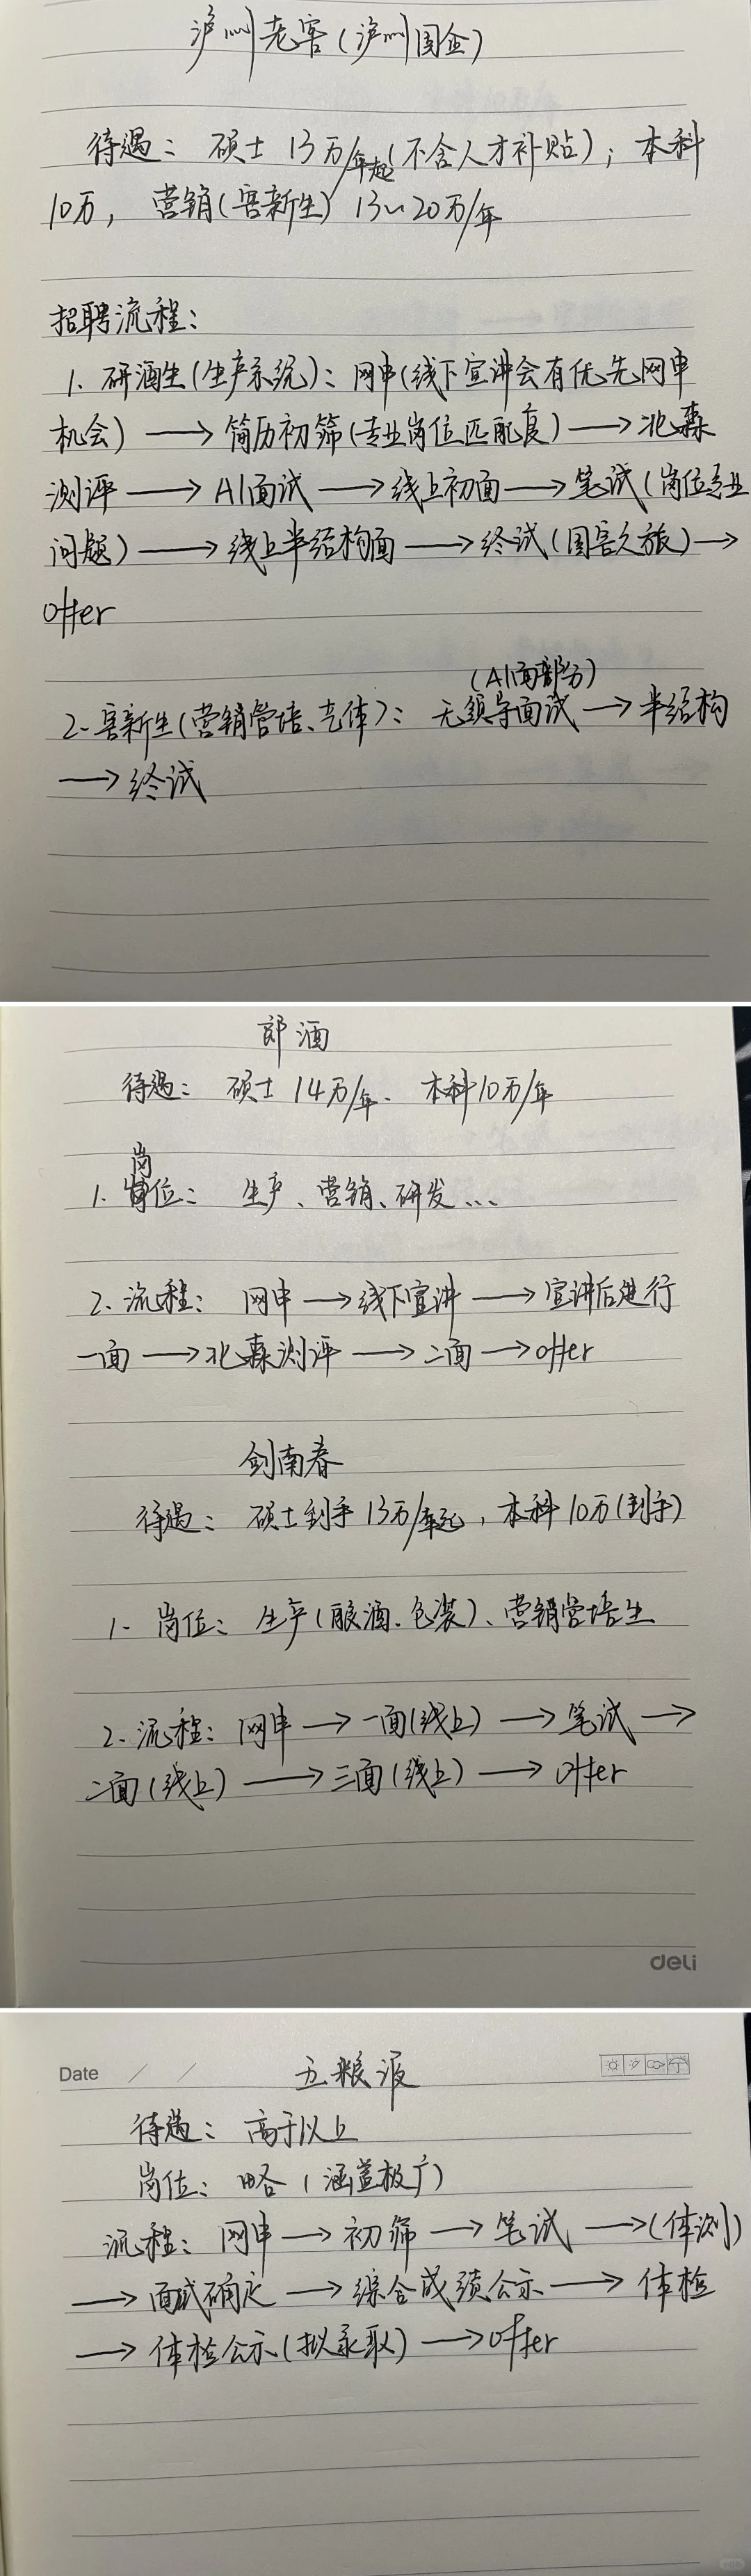 泸州老窖(泸州国企)
待遇：硕士 13万/年起(不含人才补贴)；本科
10万，营销(窖新生) 13~20万/年
招聘流程：
1. 研酒生(生产系统)：网申(线下宣讲会有优先网申
机会) → 简历初筛(专业岗位匹配度) → 北森
测评 → AI面试 → 线上初面 → 笔试(岗位专业
问题) → 线上半结构面 → 终试(国窖之旅) →
offer
(AI面部分)
2. 窖新生(营销管培、壳体)：无领导面试 → 半结构
→ 终试
郎酒
待遇：硕士 14万/年. 本科10万/年
岗
1. 位：生产、营销、研发...
2. 流程：网申 → 线下宣讲 → 宣讲后进行
一面 → 北森测评 → 二面 → offer
剑南春
待遇：硕士到手 13万/年起，本科 10万(到手)
1. 岗位：生产(酿酒、包装)、营销管培生
2. 流程：网申 → 一面(线上) → 笔试 →
二面(线上) → 三面(线上) → offer
deli
Date / /
五粮液
待遇：高于以上
岗位：略(涵盖极广)
流程：网申 → 初筛 → 笔试 → (体测)
→ 面试确定 → 综合成绩公示 → 体检
→ 体检公示(拟录取) → offer